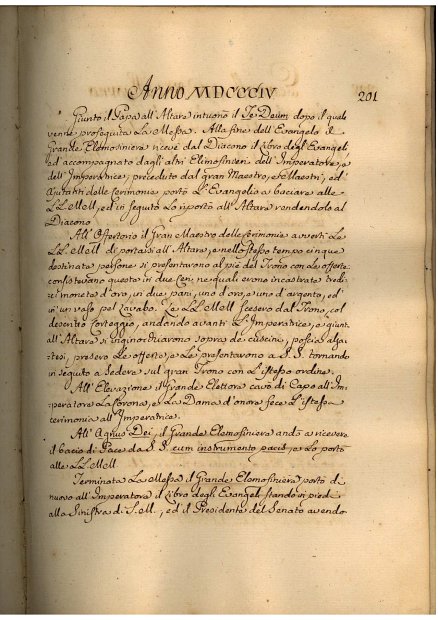 Anno MDCCCIV 201
Giunto il Papa all'Altare intuonò il Te Deum dopo il quale
venne proseguita La Messa. Alla fine dell'Evangelo il
Grande Elemosiniere ricevè dal Diacono il Libro degli Evangeli
ed accompagnato dagli altri Elimosinieri dell'Imperatore, e
dell'Imperatrice; preceduto dal gran Maestro, e Maestri, ed
Ajutanti delle Cerimonie portò L'Evangelio a baciare alle
LL. MM, ed in seguito Lo riportò all'Altare rendendolo al
Diacono
All'Offertorio il Gran Maestro delle Cerimonie avvertì Le
LL. MM. di portarsi all'Altare, e nello stesso tempo cinque
destinate persone si presentarono al piè del Trono con Le offerte
consistevano queste in due Ceri ne quali erano incastrate tredi-
ci monete d'oro, in due pani, uno d'oro, e uno d'argento, ed
in un vaso pel Lavabo. Le LL. MM scesero dal Trono, col
descritto Corteggio, andando avanti L'Imperatrice, e giunti
all'Altare si inginocchiarono sopra de cuscini, poscia alza-
tesi, presero Le offerte, e Le presentarono a S. S. tornando
in seguito a Sedere sul gran Trono con L'istesso ordine.
All'Elevazione il Grande Elettore cavò di Capo all'Im-
peratore La Corona, e La Dama d'onore fece L'istessa
cerimonia all'Imperatrice.
All'Agnus Dei, il Grande Elemosiniera andò a ricevere
il bacio di Pace da S. S. cum instrumento pacis, e Lo portò
alle LL. MM.
Terminata La Messa il Grande Elemosiniera portò di
nuovo all'Imperatore il Libro degli Evangeli stando in piedi
alla Sinistra di S. M., ed il Presidente del Senato avendo